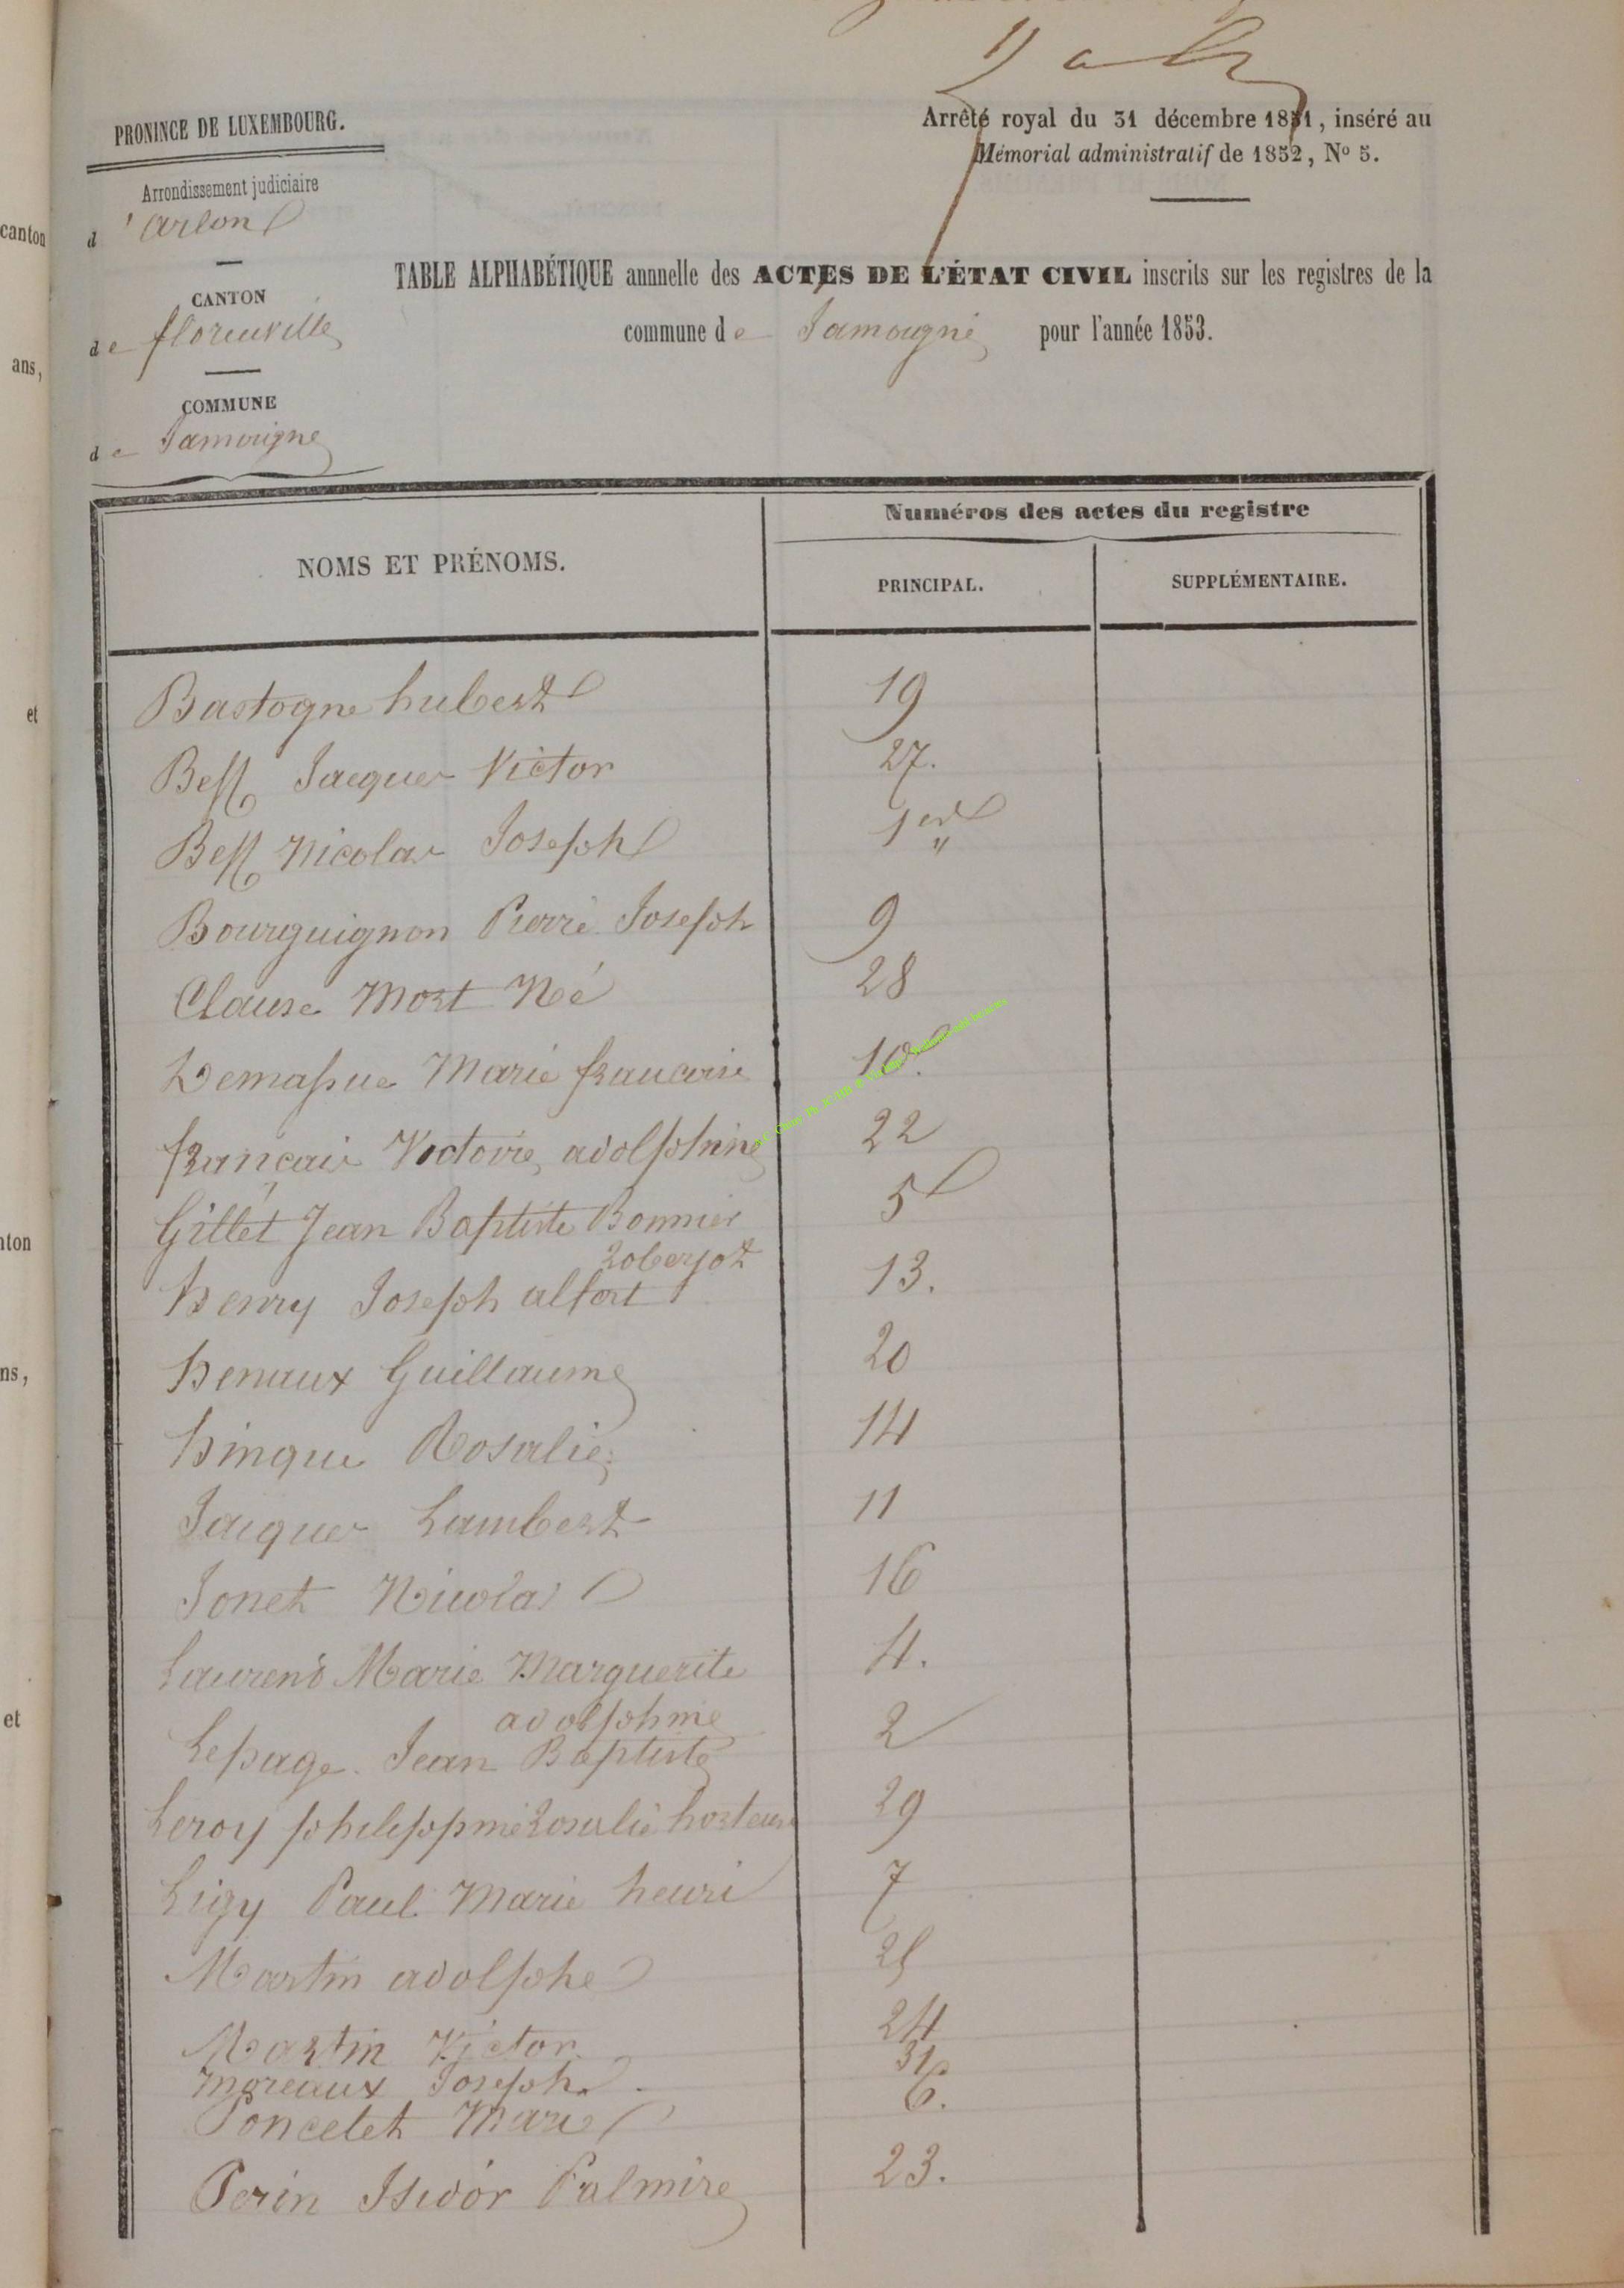 PRONINCE DE LUXEMBOURG.
Arrêté royal du 31 décembre 1851, inséré au
Mémorial administratif de 1852, Nº 5.
Arrondissement judiciaire
d'Arlon
CANTON
de florenville
COMMUNE
de Jamoigne
TABLE ALPHABÉTIQUE annnelle des ACTES DE L'ÉTAT CIVIL inscrits sur les registres de la
commune de Jamoigne pour l'année 1853.
NOMS ET PRÉNOMS.
Numéros des actes du registre
PRINCIPAL.
SUPPLÉMENTAIRE.
Bastogne hubert 19
Jacques Victor 27.
Nicolas Joseph 1er
Bourguignon Pierre Joseph 9
Clause Mort Né 28
Marie francoise 10.
français Victoire adolphine 22
Gillet Jean Baptiste 5
henry Joseph 13.
henaux Guillaume 20
hinque Rosalie 14
Jacques Lambert 11
Jonet Nicolas 16
Laurend Marie Marguerite 4.
adolphine
Lepage. Jean Baptiste 2
Leroy philippine Rosalie 29
Ligy Paul Marie henri 7
Martin adolphe 25
Martin Victor 24
moreaux Joseph. 31
Poncelet Marie 6.
Perin Isidor Palmire 23.
canton
ans,
et
nton
ns,
et